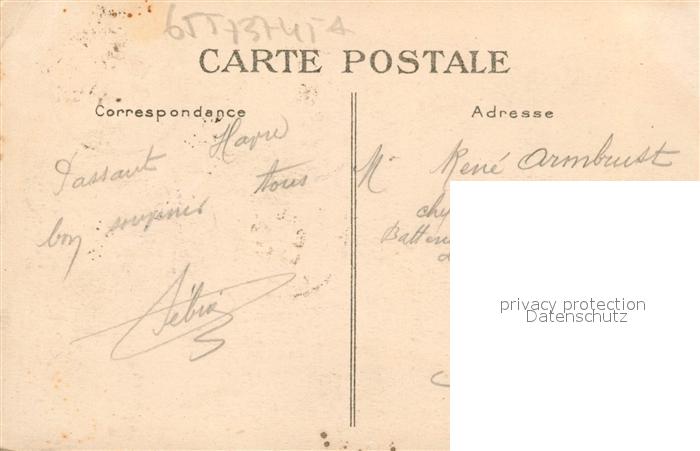 65573745A
CARTE POSTALE
Correspondance
Adresse
Passant Havre
bon souvenir tous
Mr René Armbrust
che
Batterie
privacy protection
Datenschutz